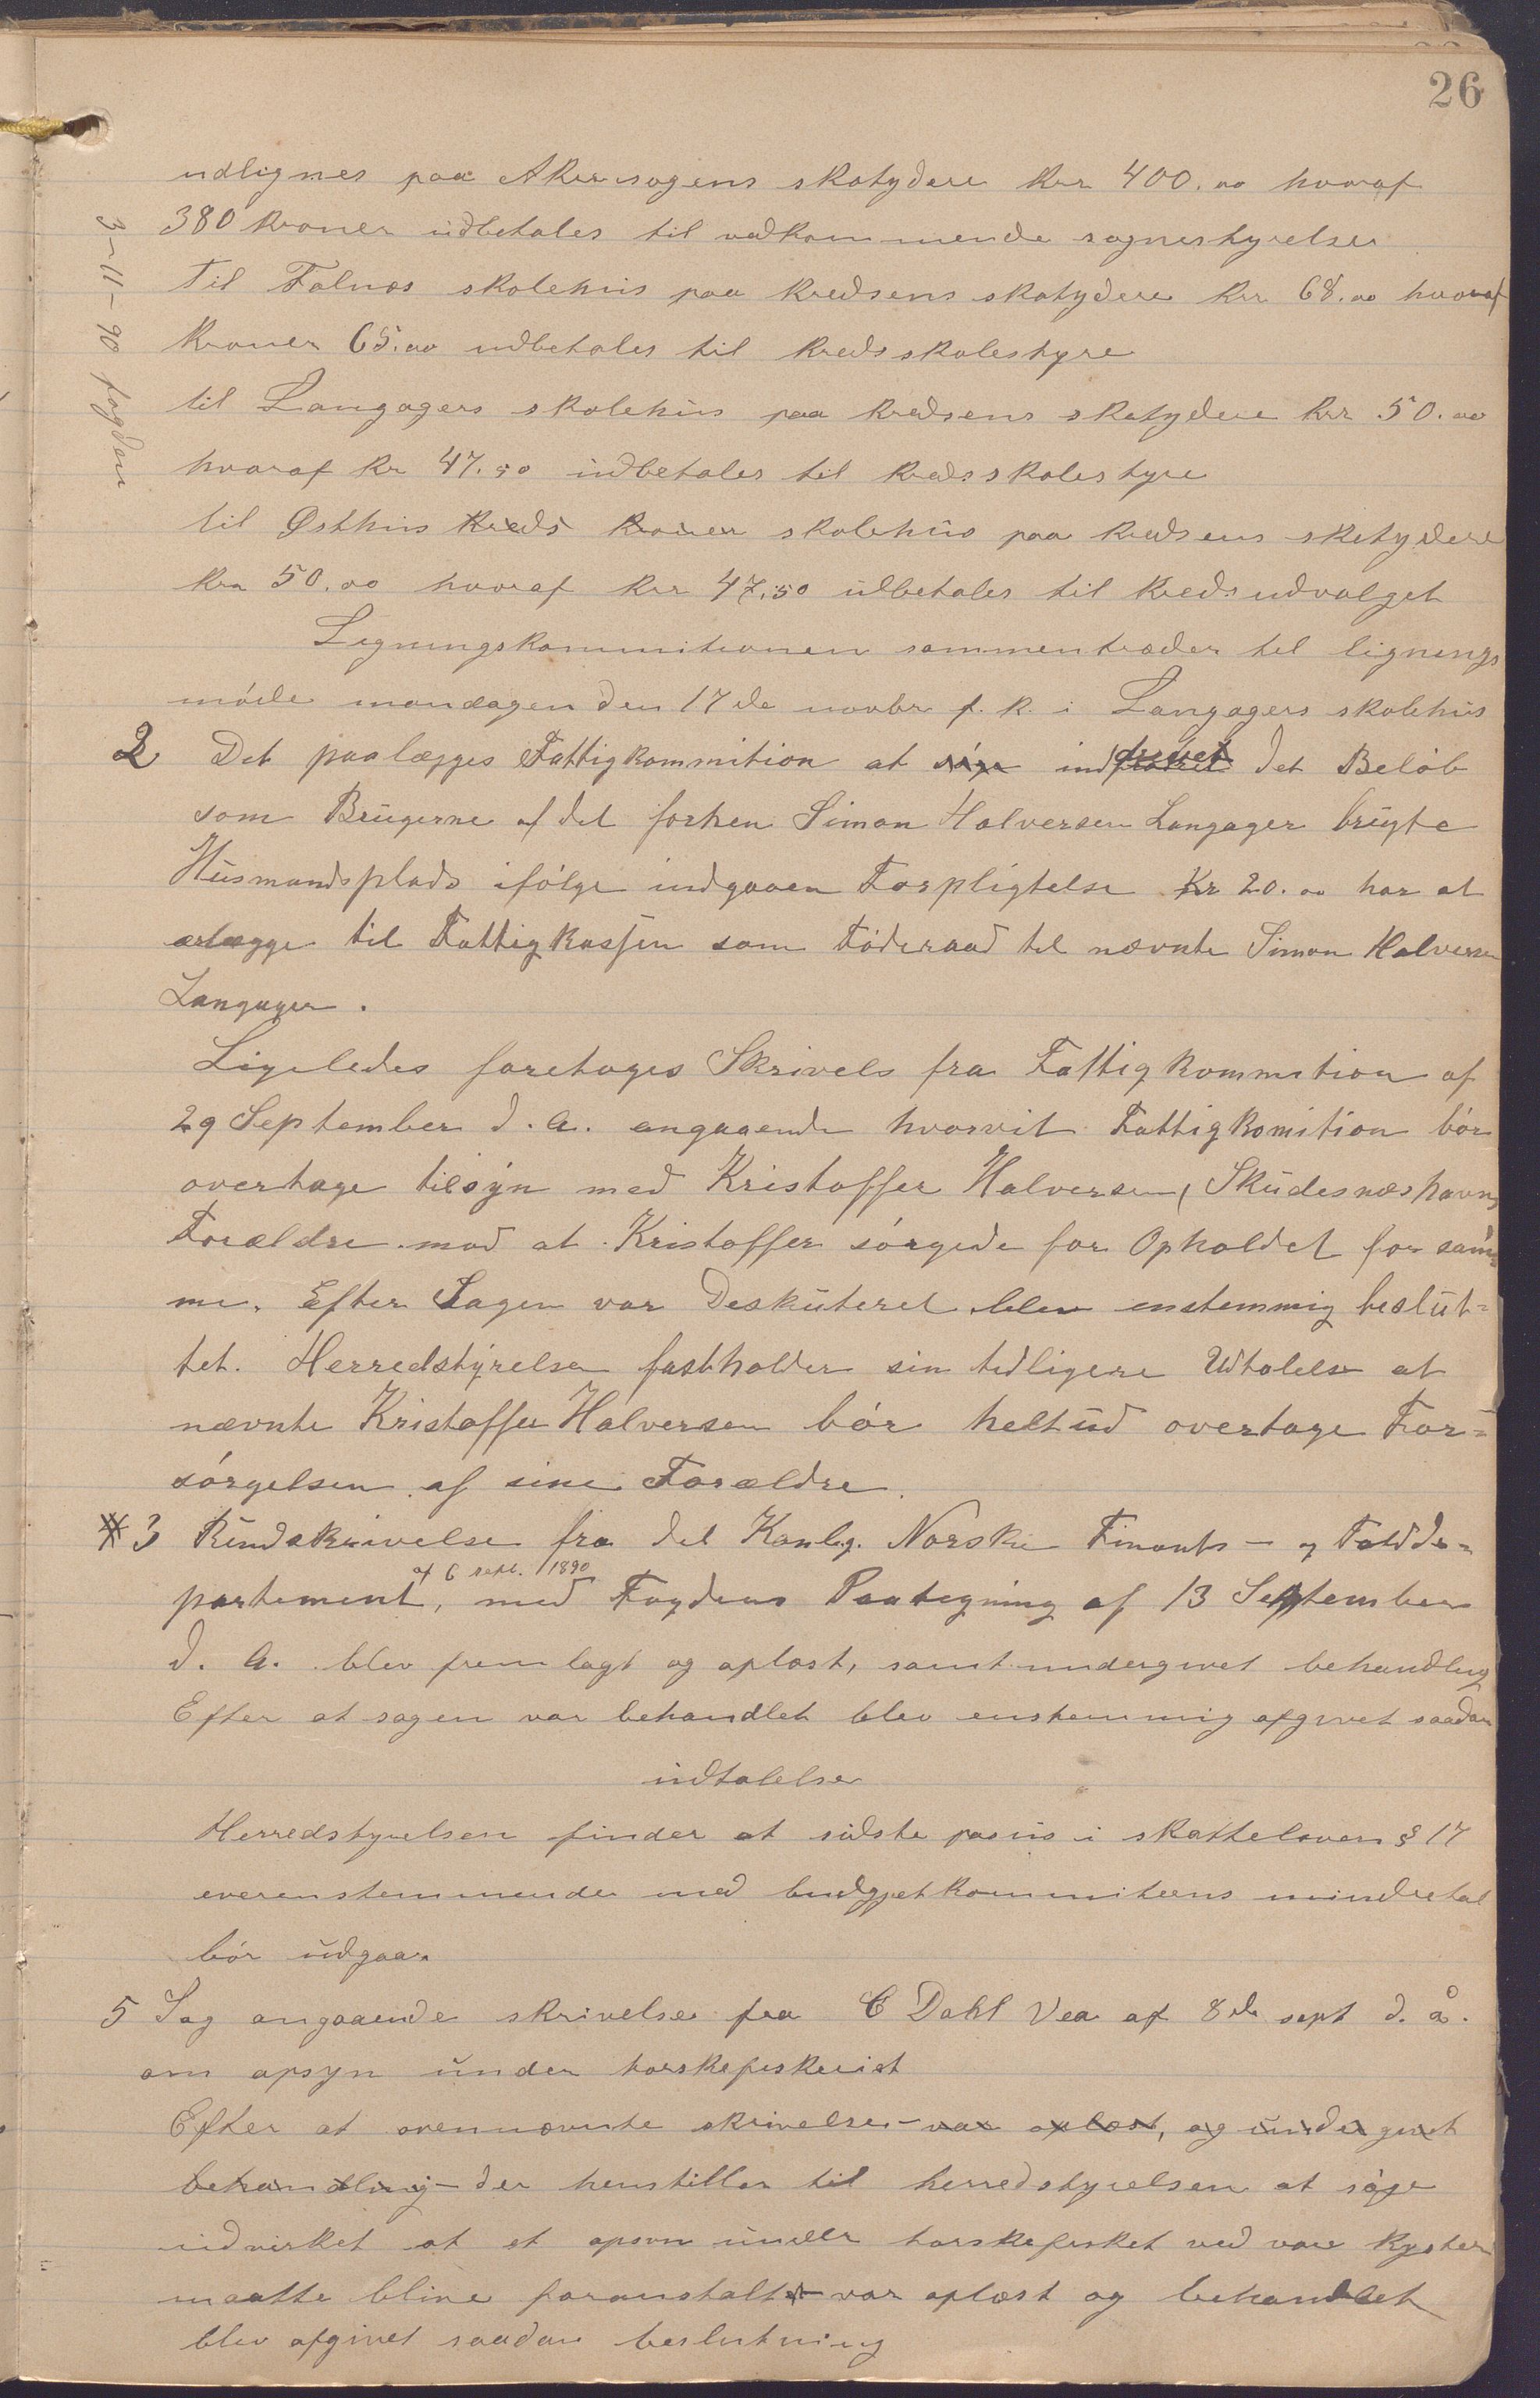 26
udlignes paa Akresognens skatydere kr 400.00 hvoraf
380 kroner udbetales til vedkommende sognestyrelser
Til Falnæs skolehus paa kredsens skatydere kr 68.00 hvoraf
kroner 65.00 udbetales til kredsskolestyre
til Langagers skolehus paa kredsens skatydere kr 50.00
hvoraf kr 47.50 udbetales til kredsskolestyre
til Østhus kreds kroner skolehus paa kredsens skatydere
kr 50.00 hvoraf kr 47.50 udbetales til kredsudvalget
Ligningskommitionen sammentræder til lignings
møde mandagen den 17de novbr f. k. i Langagers skolehus
2 Det paalægges Fattigkommition at søge ind drevet det Beløb
som Brugerne af det forhen Simon Halversen Langager brugte
Husmandsplads ifølge indgaaen Forpligtelse Kr 20.00 har at
erlægge til Fattigkassen som Føderaad til nævnte Simon Halversen
Langager.
Ligeledes foretoges Skrivels fra Fattigkommition af
29 September d. a. angaaende hvorvit Fattigkomition bør
overtage tilsyn med Kristoffer Halversen, Skudesnæshavns
Forældre mod at Kristoffer sørgede for Opholdet for sam
me. Efter Sagen var Deskuteret blev enstemmig beslut-
tet. Herredstyrelsen fastholder sin tidligere Udtalelse at
nævnte Kristoffer Halversen bør heltud overtage For-
sørgelsen af sine Forældre.
# 3 Rundskrivelse fra det Konlg. Norske Finants- og Toldde-
af 6 sept. 1890
partement, med Fogdens Paategning af 13 September
d. A. blev fremlagt og oplæst, samt undergivet behandling
Efter at sagen var behandlet blev enstemmig afgivet saadan
udtalelse
Herredstyrelsen finder at sidste pasus i skatteloven § 17
overenstemmende med budgjetkommiteens mindretal
bør udgaa.
5 Sag angaaende skrivelse fra C Dahl Vea af 8de sept d. å.
om opsyn under torskefiskeriet
Efter at ovennævnte skrivelse - var oplæst, og undergivet
behandling - der henstiller til herredstyrelsen at søge
udvirket at et opsyn under torskefisket ved vore kyster
maatte blive foranstaltet var oplæst og behandlet
blev afgivet saadan beslutning
3-11-90 fogden